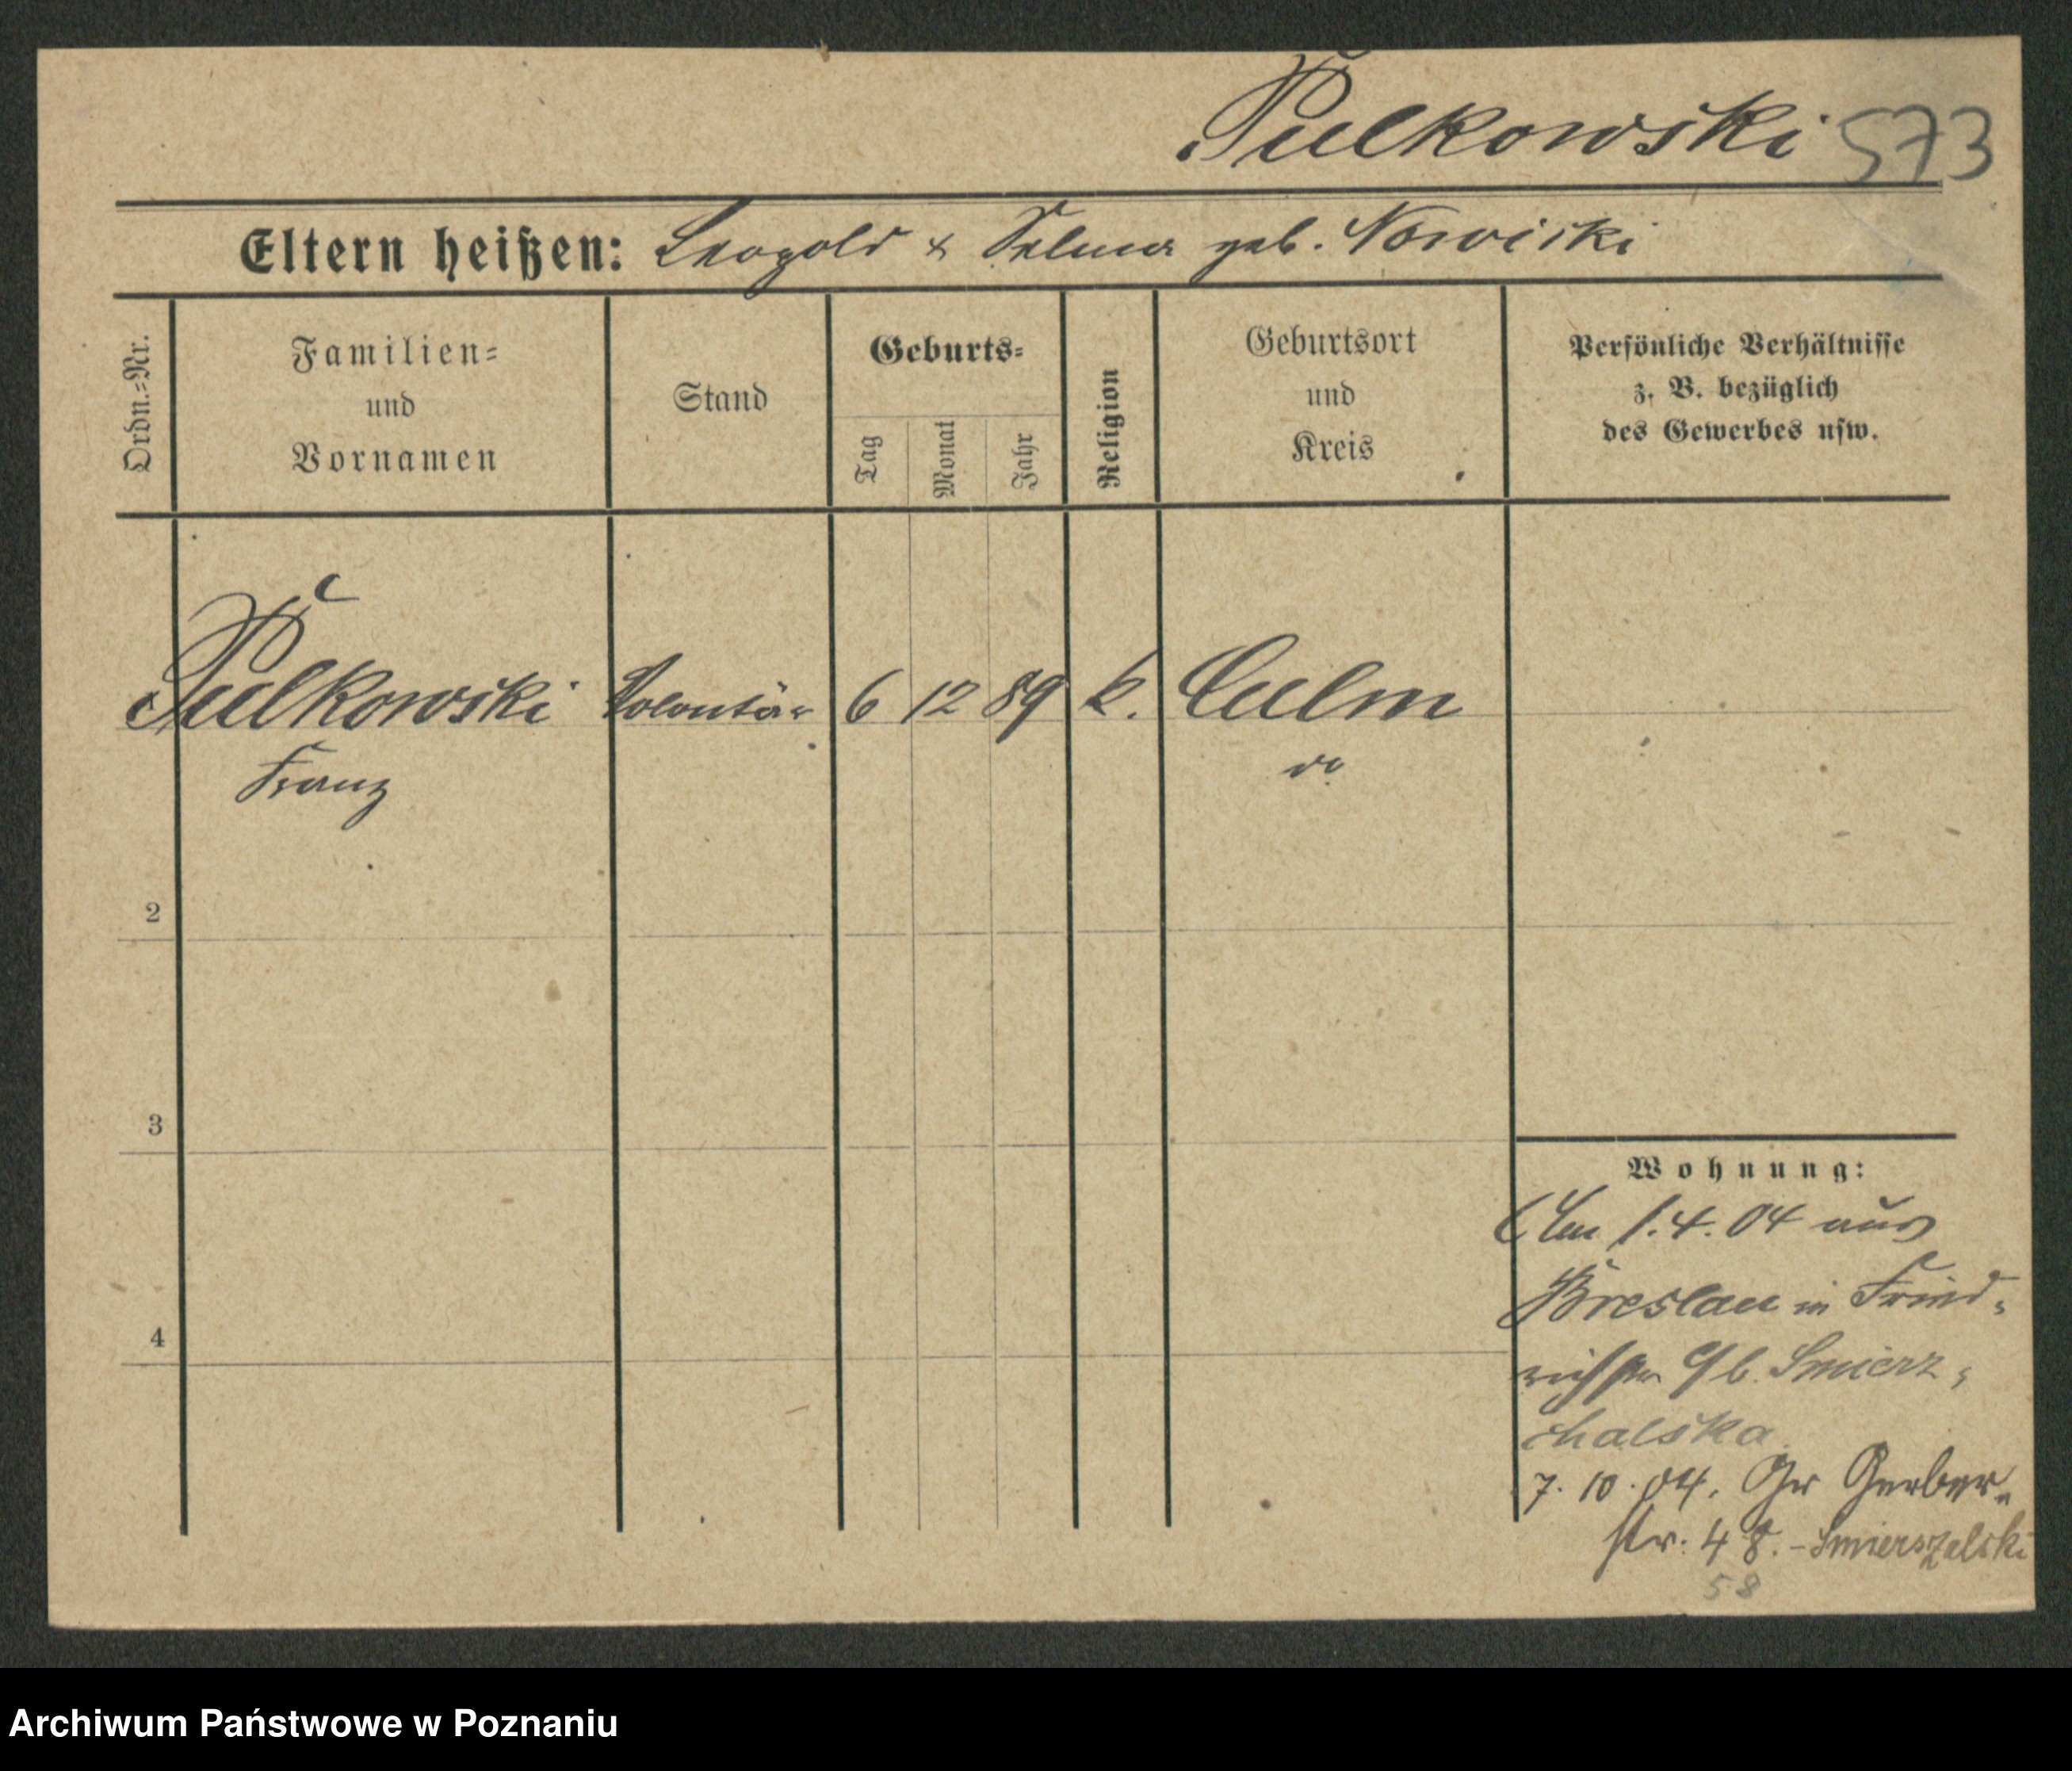 Pulkowski 573
Eltern heißen: Leopold & Selma geb. Nowicki
Ordn.=Nr.
Familien=
und
Vornamen
Stand
Geburts=
Tag
Monat
Jahr
Religion
Geburtsort
und
Kreis
Persönliche Verhältnisse
z. B. bezüglich
des Gewerbes usw.
Pulkowski Volontär 6 12 89 k. Culm
Franz do
2
3
4
Wohnung:
Am 1.4.04 aus
Breslau in Fried=
richstr 9 b. Smierz=
chalska
7.10.04. Gr Gerber=
str. 48. - Smierszalski
58
Archiwum Państwowe w Poznaniu